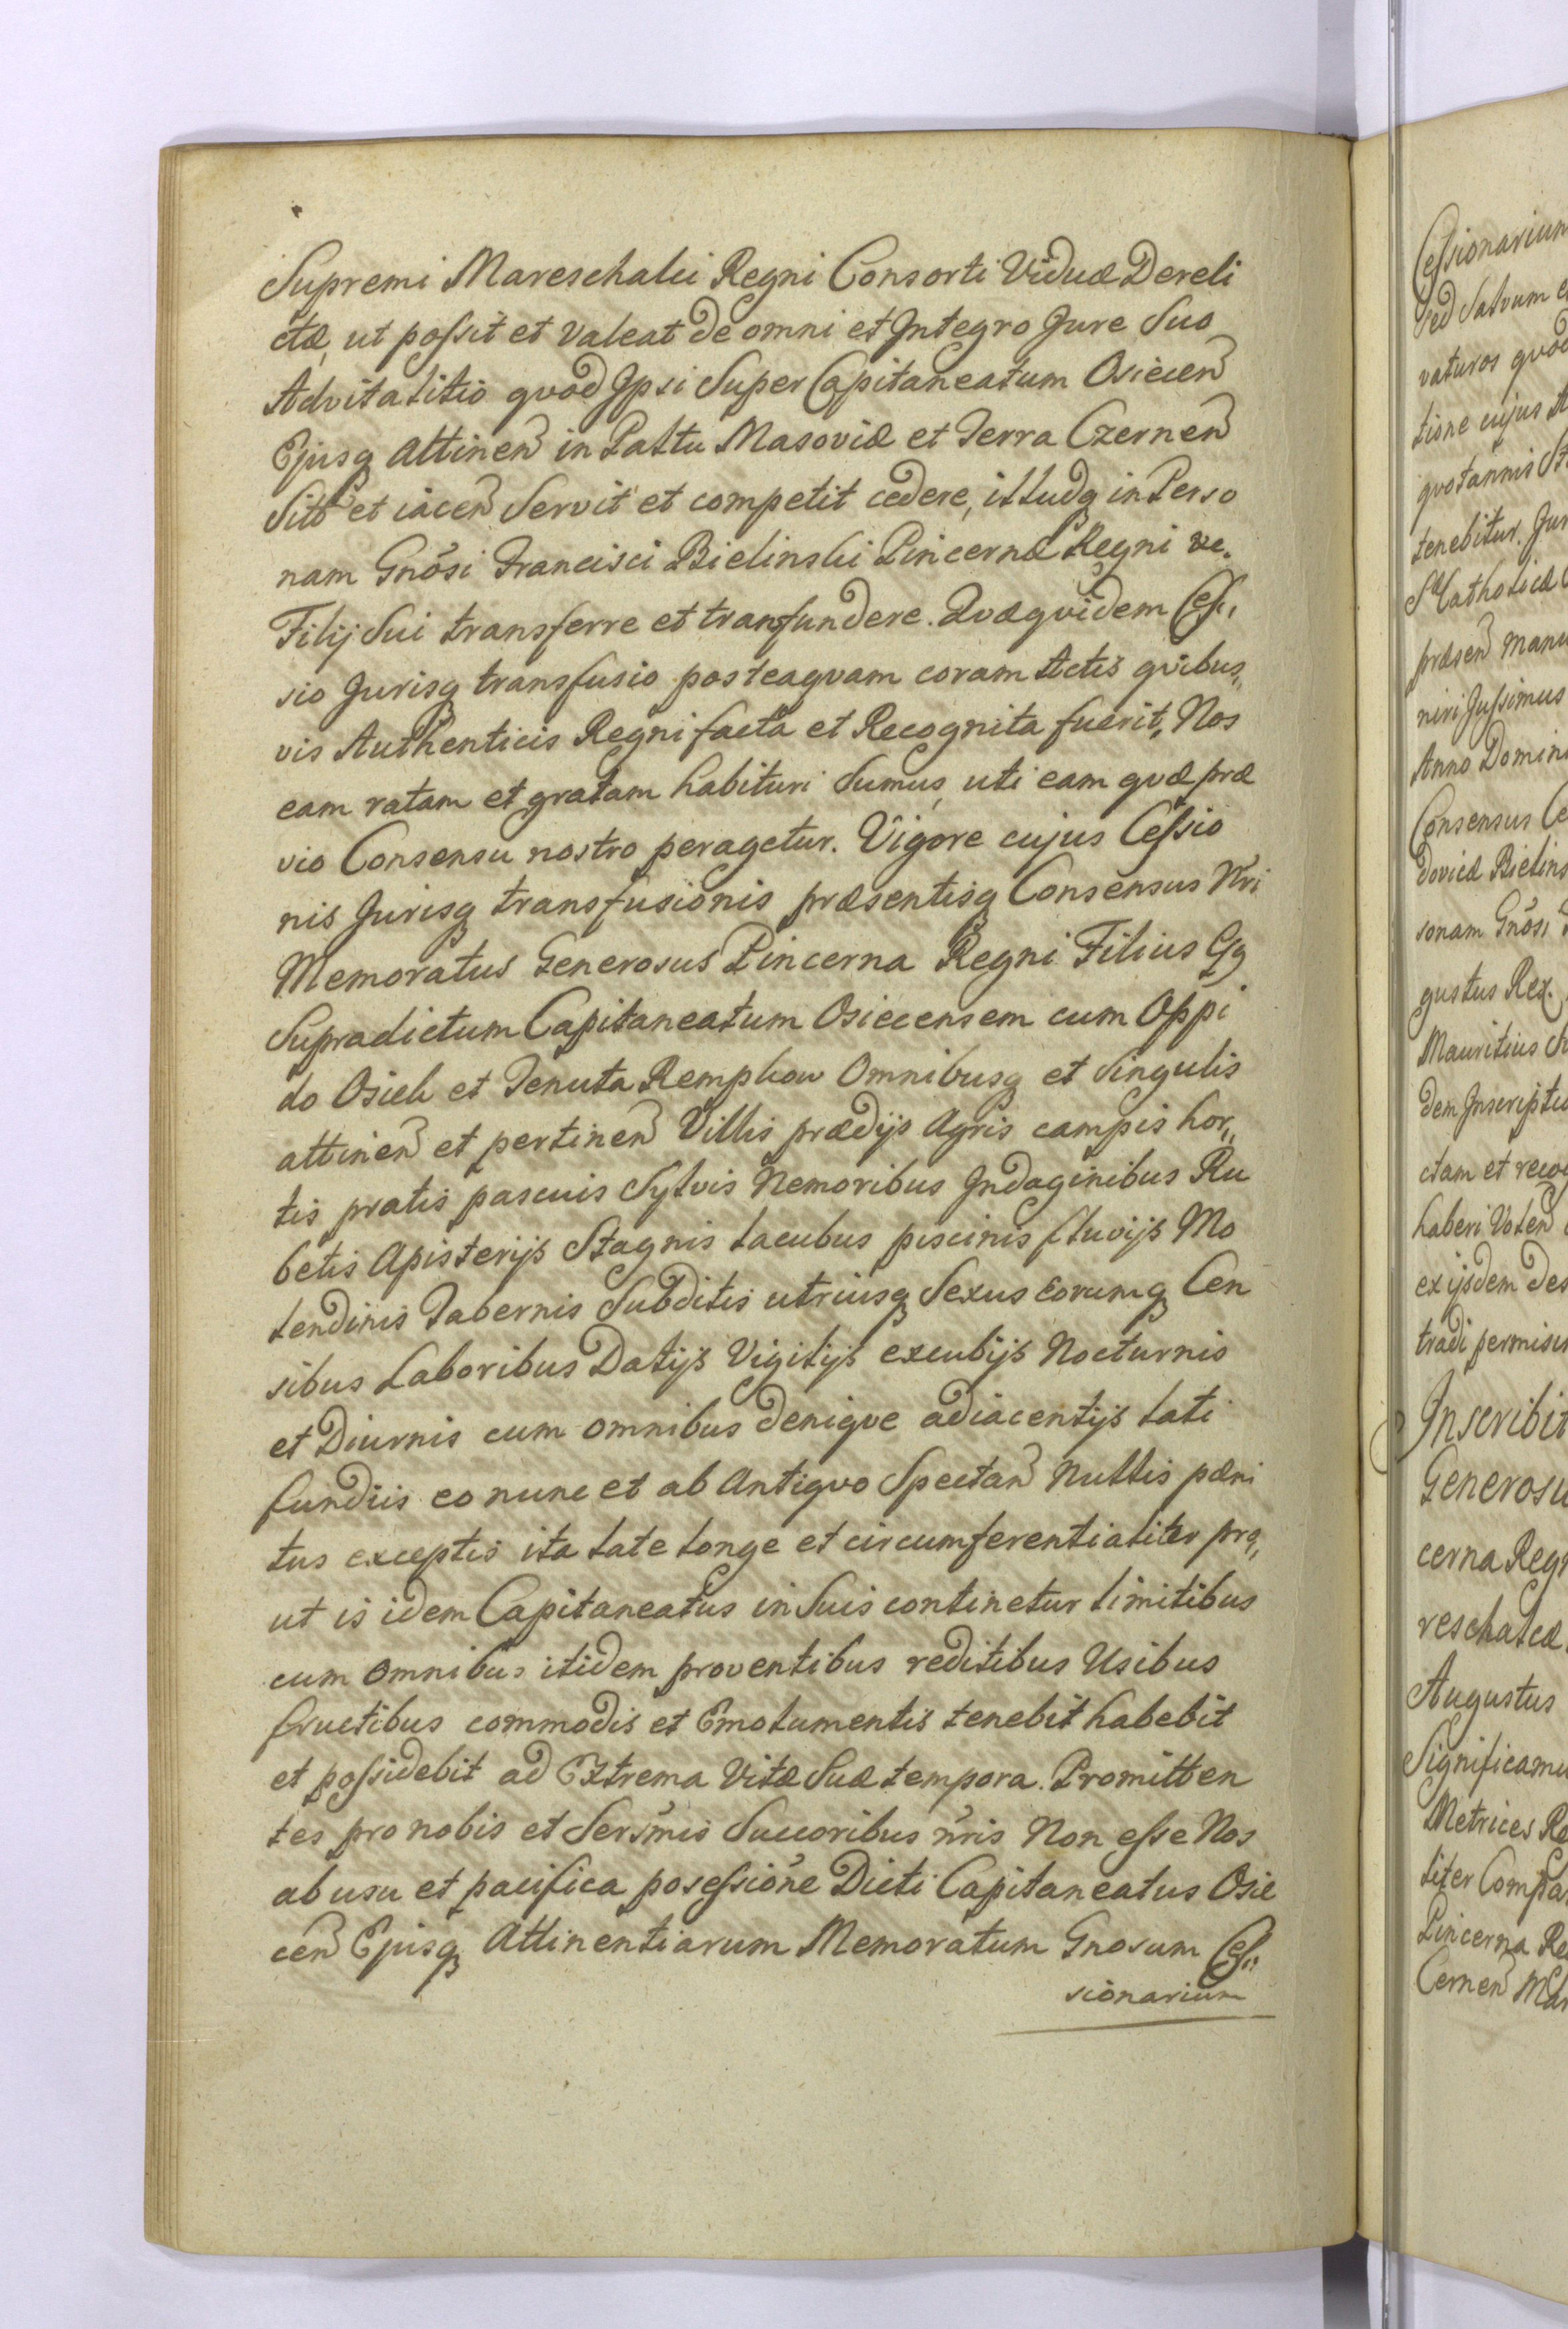 Supremi Mareschalci Regni Consorti Viduæ Dereli
ctæ, ut possit et valeat de omni et Integro Jure Suo
Advitalitio quod Ipsi Super Capitaneatum Osiecen
Ejusq Attinen in Pallu Masoviæ et Terra Czernen
Sitõ et iacen Servit et competit cedere, illudq in Perso
nam Gnõsi Francisci Bielinski Pincernæ Regni
Filij Sui transferre et transfundere. Quæquidem Ces„
sio Jurisq transfusio posteaquam coram Actis quibus„
vis Authenticis Regni facta et Recognita fuerit, Nos
eam ratam et gratam habituri Sumus, uti eam quæ præ
vio Consensu nostro peragetur. Vigore cujus Cessio
nis Jurisq transfusionis præsentisq Consensus Nri
Memoratus Generosus Pincerna Regni Filius
Supradictum Capitaneatum Osiecensem cum Oppi
do Osiek et Tenuta Rempkow Omnibusq et Singulis
attinen et pertinen Villis prædijs Agris campis hor„
tis pratis pascuis Sylvis Nemoribus Indaginibus Ru
betis Apisterijs Stagnis lacubus piscinis fluvijs Mo
lendinis Tabernis Subditis utriusq Sexus Eorumq Cen
sibus Laboribus Datijs Vigilijs excubijs Nocturnis
et Diurnis cum omnibus denique adiacentijs lati
fundiis eo nunc et ab Antiquo Spectan Nullis pæni
tus exceptis ita late longe et circumferentialiter pro„
ut is idem Capitaneatus in Suis continetur limitibus
cum omnibus itidem proventibus reditibus Usibus
fructibus commodis et Emolumentis tenebit habebit
et possidebit ad Extrema Vitæ Suæ tempora. Promitten
tes pro nobis et Sersmis Succoribus nris Non esse Nos
ab usu et pacifica posessione Dicti Capitaneatus Osie
cen Ejusq Attinentiarum Memoratum Gnosum Ces„
sionarium
Cessionarium
Sed Salvum
vaturos quod
tione cujus
quotannis
tenebitur.
S Catholicæ
præsen manu
niri Jussimus
Anno Domini
Consensus
dovicæ Bielins
sonam Gnõsi
gustus Rex.
Mauritius
dem Inscriptio
ctam et
haberi Volen
ex ijsdem
tradi permisi
Inscribit
Generosu
cerna Regn
reschalcæ
Augustus
Significamu
Metrices
liter Compa
Pincerna
Cernen